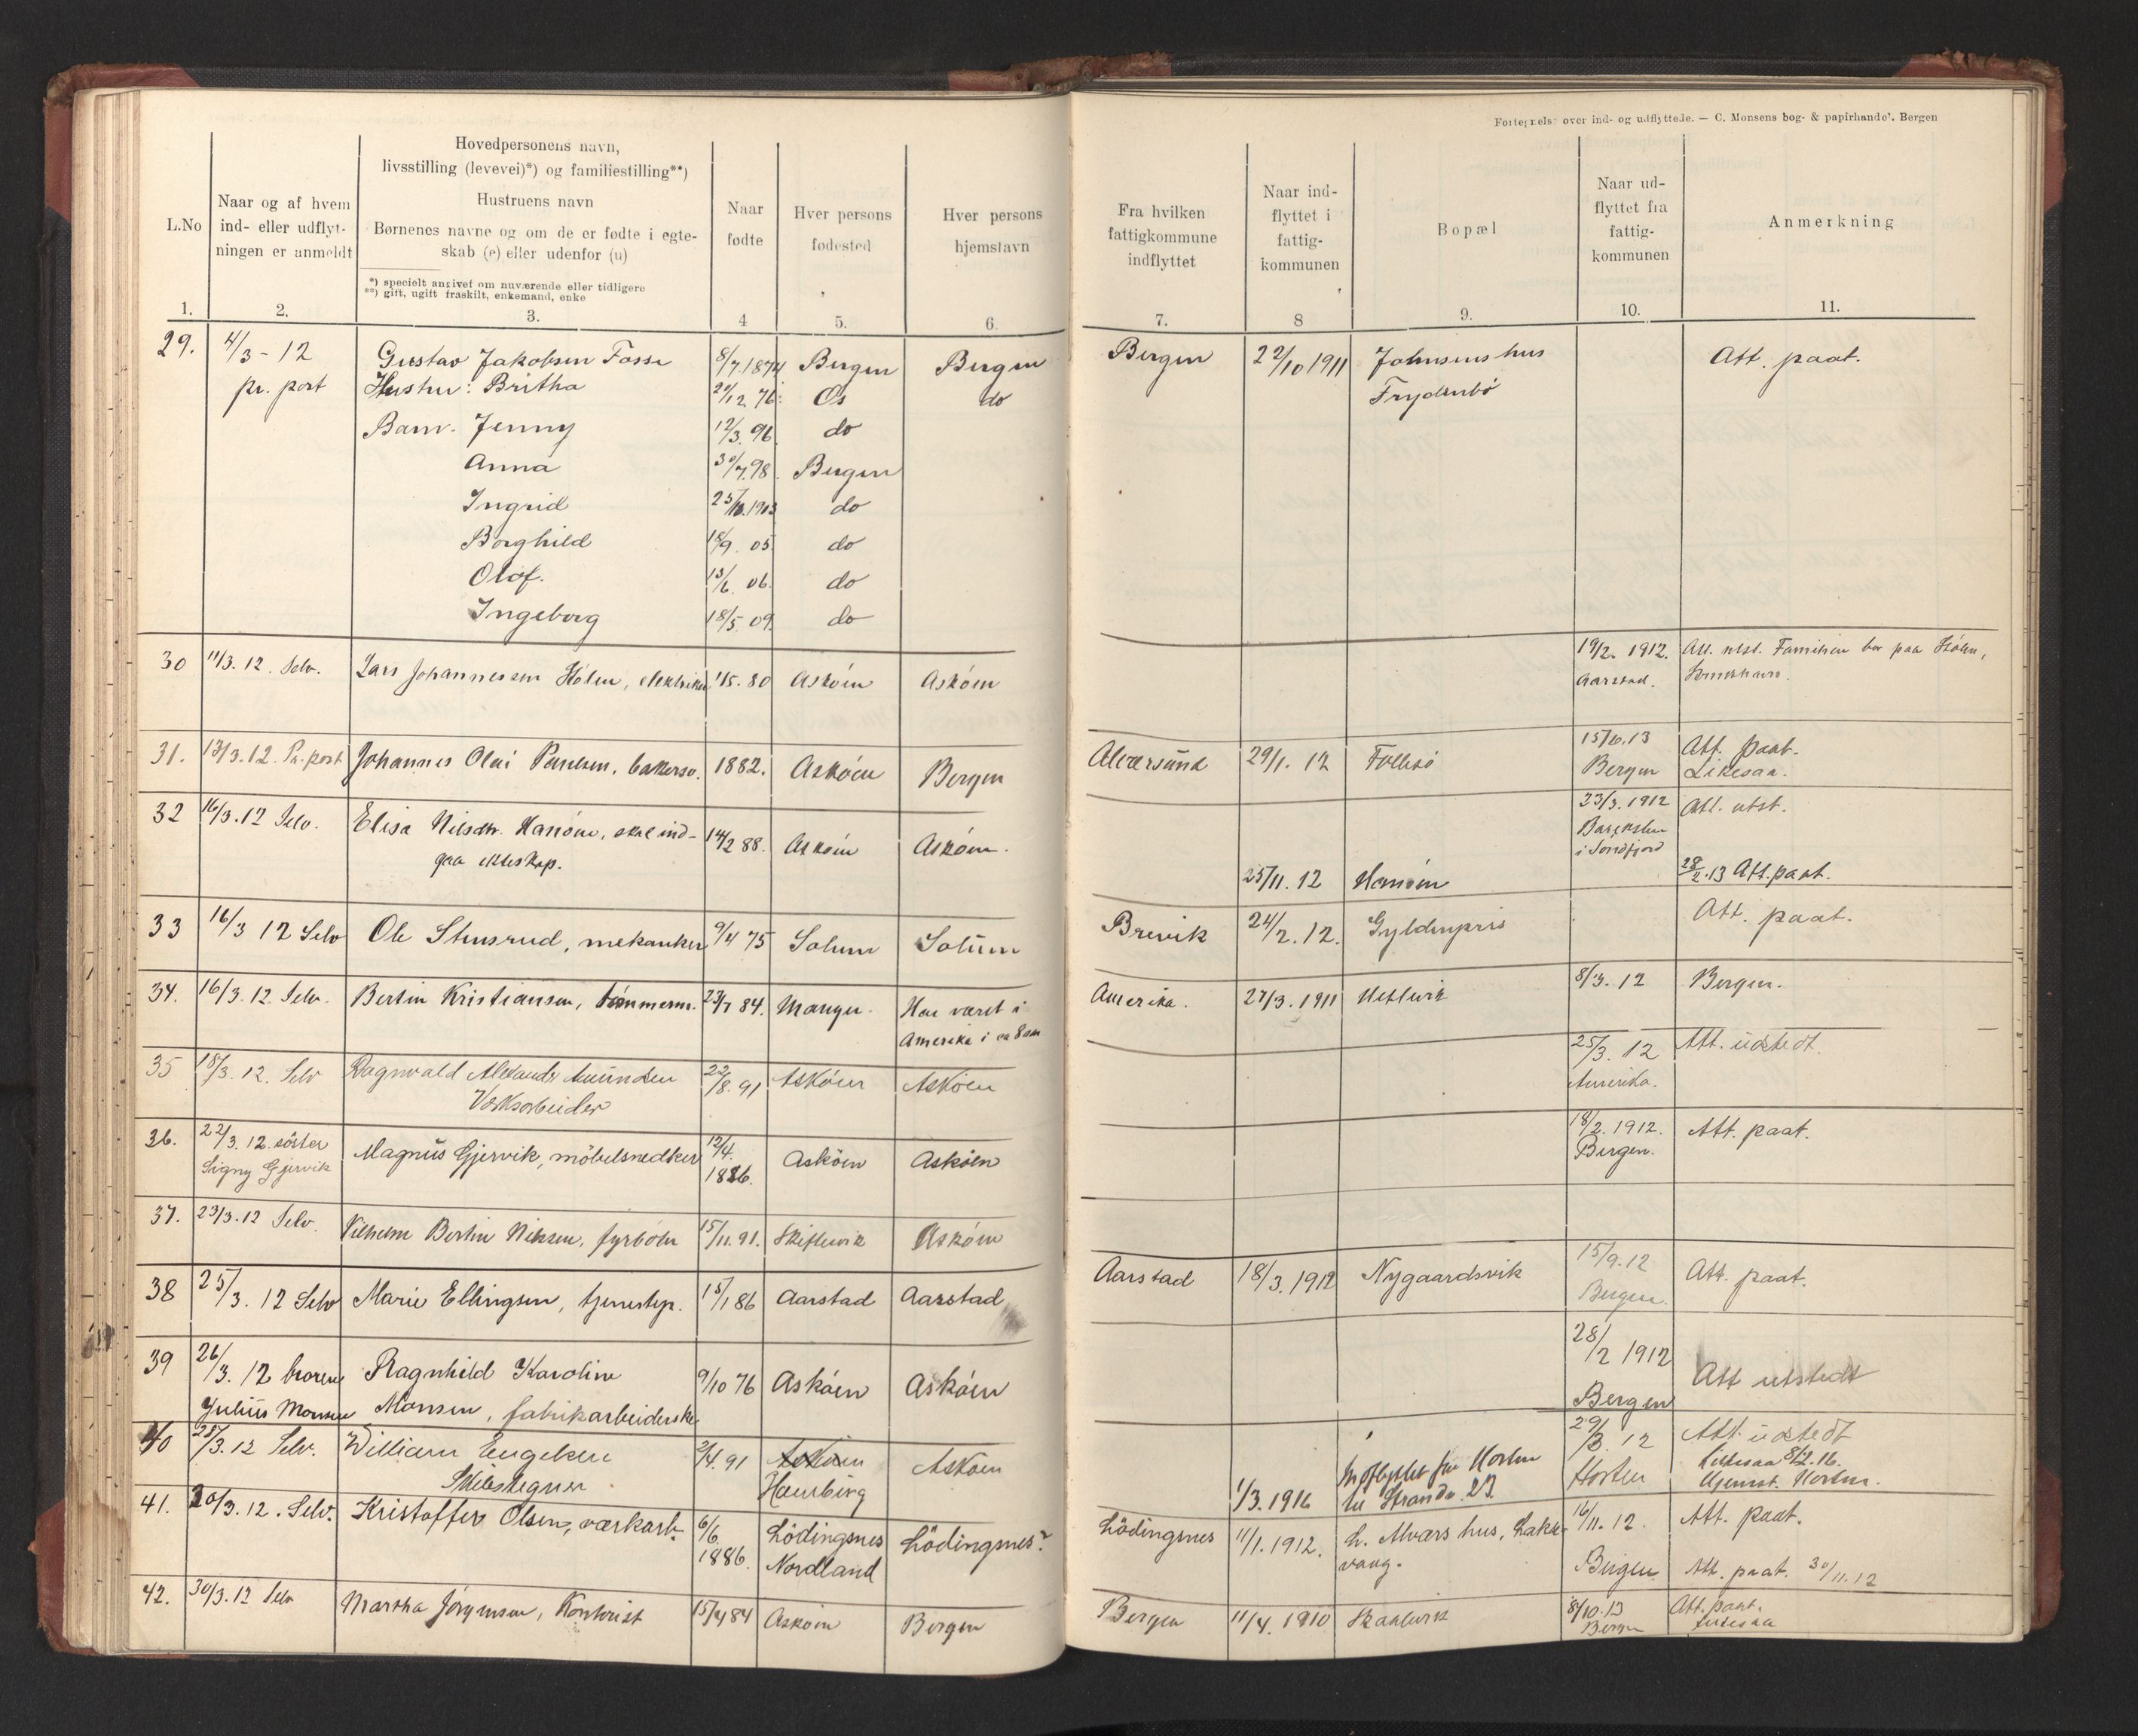 Fortegnelse over ind- og udflyttede. — C. Monsens bog- & papirhandel, Bergen
L.No
Naar og af hvem ind- eller udflyt-ningen er anmeldt
Hovedpersonens navn,
livsstilling (levevei)*) og familiestilling**)
Hustruens navn
Børnenes navne og om de er fødte i egte-
skab (e) eller udenfor (u)
*) specielt angivet om nuværende eller tidligere
**) gift, ugift fraskilt, enkemand, enke
Naar fødte
Hver persons fødested
Hver persons hjemstavn
Fra hvilken fattigkommune indflyttet
Naar ind-flyttet i fattig-kommunen
Bopæl
Naar ud-flyttet fra fattig-kommunen
Anmerkning
1. 2. 3. 4 5. 6. 7. 8 9. 10. 11.
29. 4/3 - 12 Gustav Jakobsen Fosse 8/7.1874 Bergen Bergen Bergen 22/10 1911 Johnsens hus Att. paat.
pr. post Hustru: Britha 22/12 76. Os do Frydenbø
Barn. Jenny 12/3. 96 do
Anna 30/7.98. Bergen
Ingrid 25/10.1903 do
Borghild 18/9. 05 do
Olof. 13/6. 06. do
Ingeborg 18/5 09. do
30 11/3.12. Selv. Lars Johannessen Holm, elektriker 1/5.80 Askøen Askøen 19/2. 1912. Att. utst. Familien bor paa Holm,
Aarstad.
31. 13/3.12. Pr. post Johannes Olai Paulsen, bakersv. 1882. Askøen Bergen Alversund 29/1. 12 Follesø 15/6.13 Att. paat.
Bergen Likesaa.
32 16/3.12 Selv. Elisa Nilsdtr. Hanøen, skal ind- 14/2 88. Askøen Askøen. 23/3.1912 Att. utst.
gaa ekteskap. i Søndfjord
25/11. 12 Hanøen 28/2.13 Att. paat.
33 16/3 12 Selv Ole Stusrud, mekaniker 9/4 75 Solum Solum Brevik 24/2.12. Gyldenpris Att. paat.
34. 16/3.12. Selv. Bertin Kristiansen, tømmerm. 23/7 84. Manger. Har været i Amerika. 27/3.1911 Hetlevik 8/3. 12 Bergen.
Amerika i ca 8 aar
35 18/3.12. Selv Ragnvald Alexander Amundsen 22/8.91 Askøen Askøen 25/3. 12 Att. udstedt.
Verksarbeider Amerika.
36. 22/3.12. søster Magnus Gjervik, møbelsnedker 12/4. 1886. Askøen Askøen 18/2.1912. Att. paat.
Signy Gjervik Bergen.
37. 23/3.12 Selv. Vilhelm Bertin Nilsen, fyrbøter 15/11.91. Skiftesvik Askøen
38 25/3.12 Selv Marie Ellingsen, tjenestep. 15/1 86 Aarstad Aarstad Aarstad 18/3.1912 Nygaardsvik 15/9.12 Att. paat.
Bergen.
39 26/3.12 broren Ragnhild Karoline 9/10 76 Askøen Askøen 28/2 1912 Att utstedt
Julius Monsen Monsen, fabrikarbeiderske Bergen
40 28/3.12 Selv. William Engelsen 2/4.91 Askøen Askøen 29/3. 12 Att. udstedt
Skibstegner Hamburg 1/3.1916 Indflyttet fra Horten Horten Likesaa 8/2.16.
til Strands. 23. Hjemst. Horten.
41. 30/3.12. Selv. Kristoffer Olsen, værksarb. 6/6 1886. Lødingsnes Nordland Lødingsnes? Lødingsnes 11/1.1912. L. Alvers hus, Laks-vaag. 16/11.12. Att. paat.
Bergen Att. paat. 30/11.12
42. 30/3.12 Selv Martha Jørgensen, Kontorist 15/4 84 Askøen Bergen Bergen 11/4. 1910 Skaalevik 8/10.13 Att. paat.
Bergen Likesaa